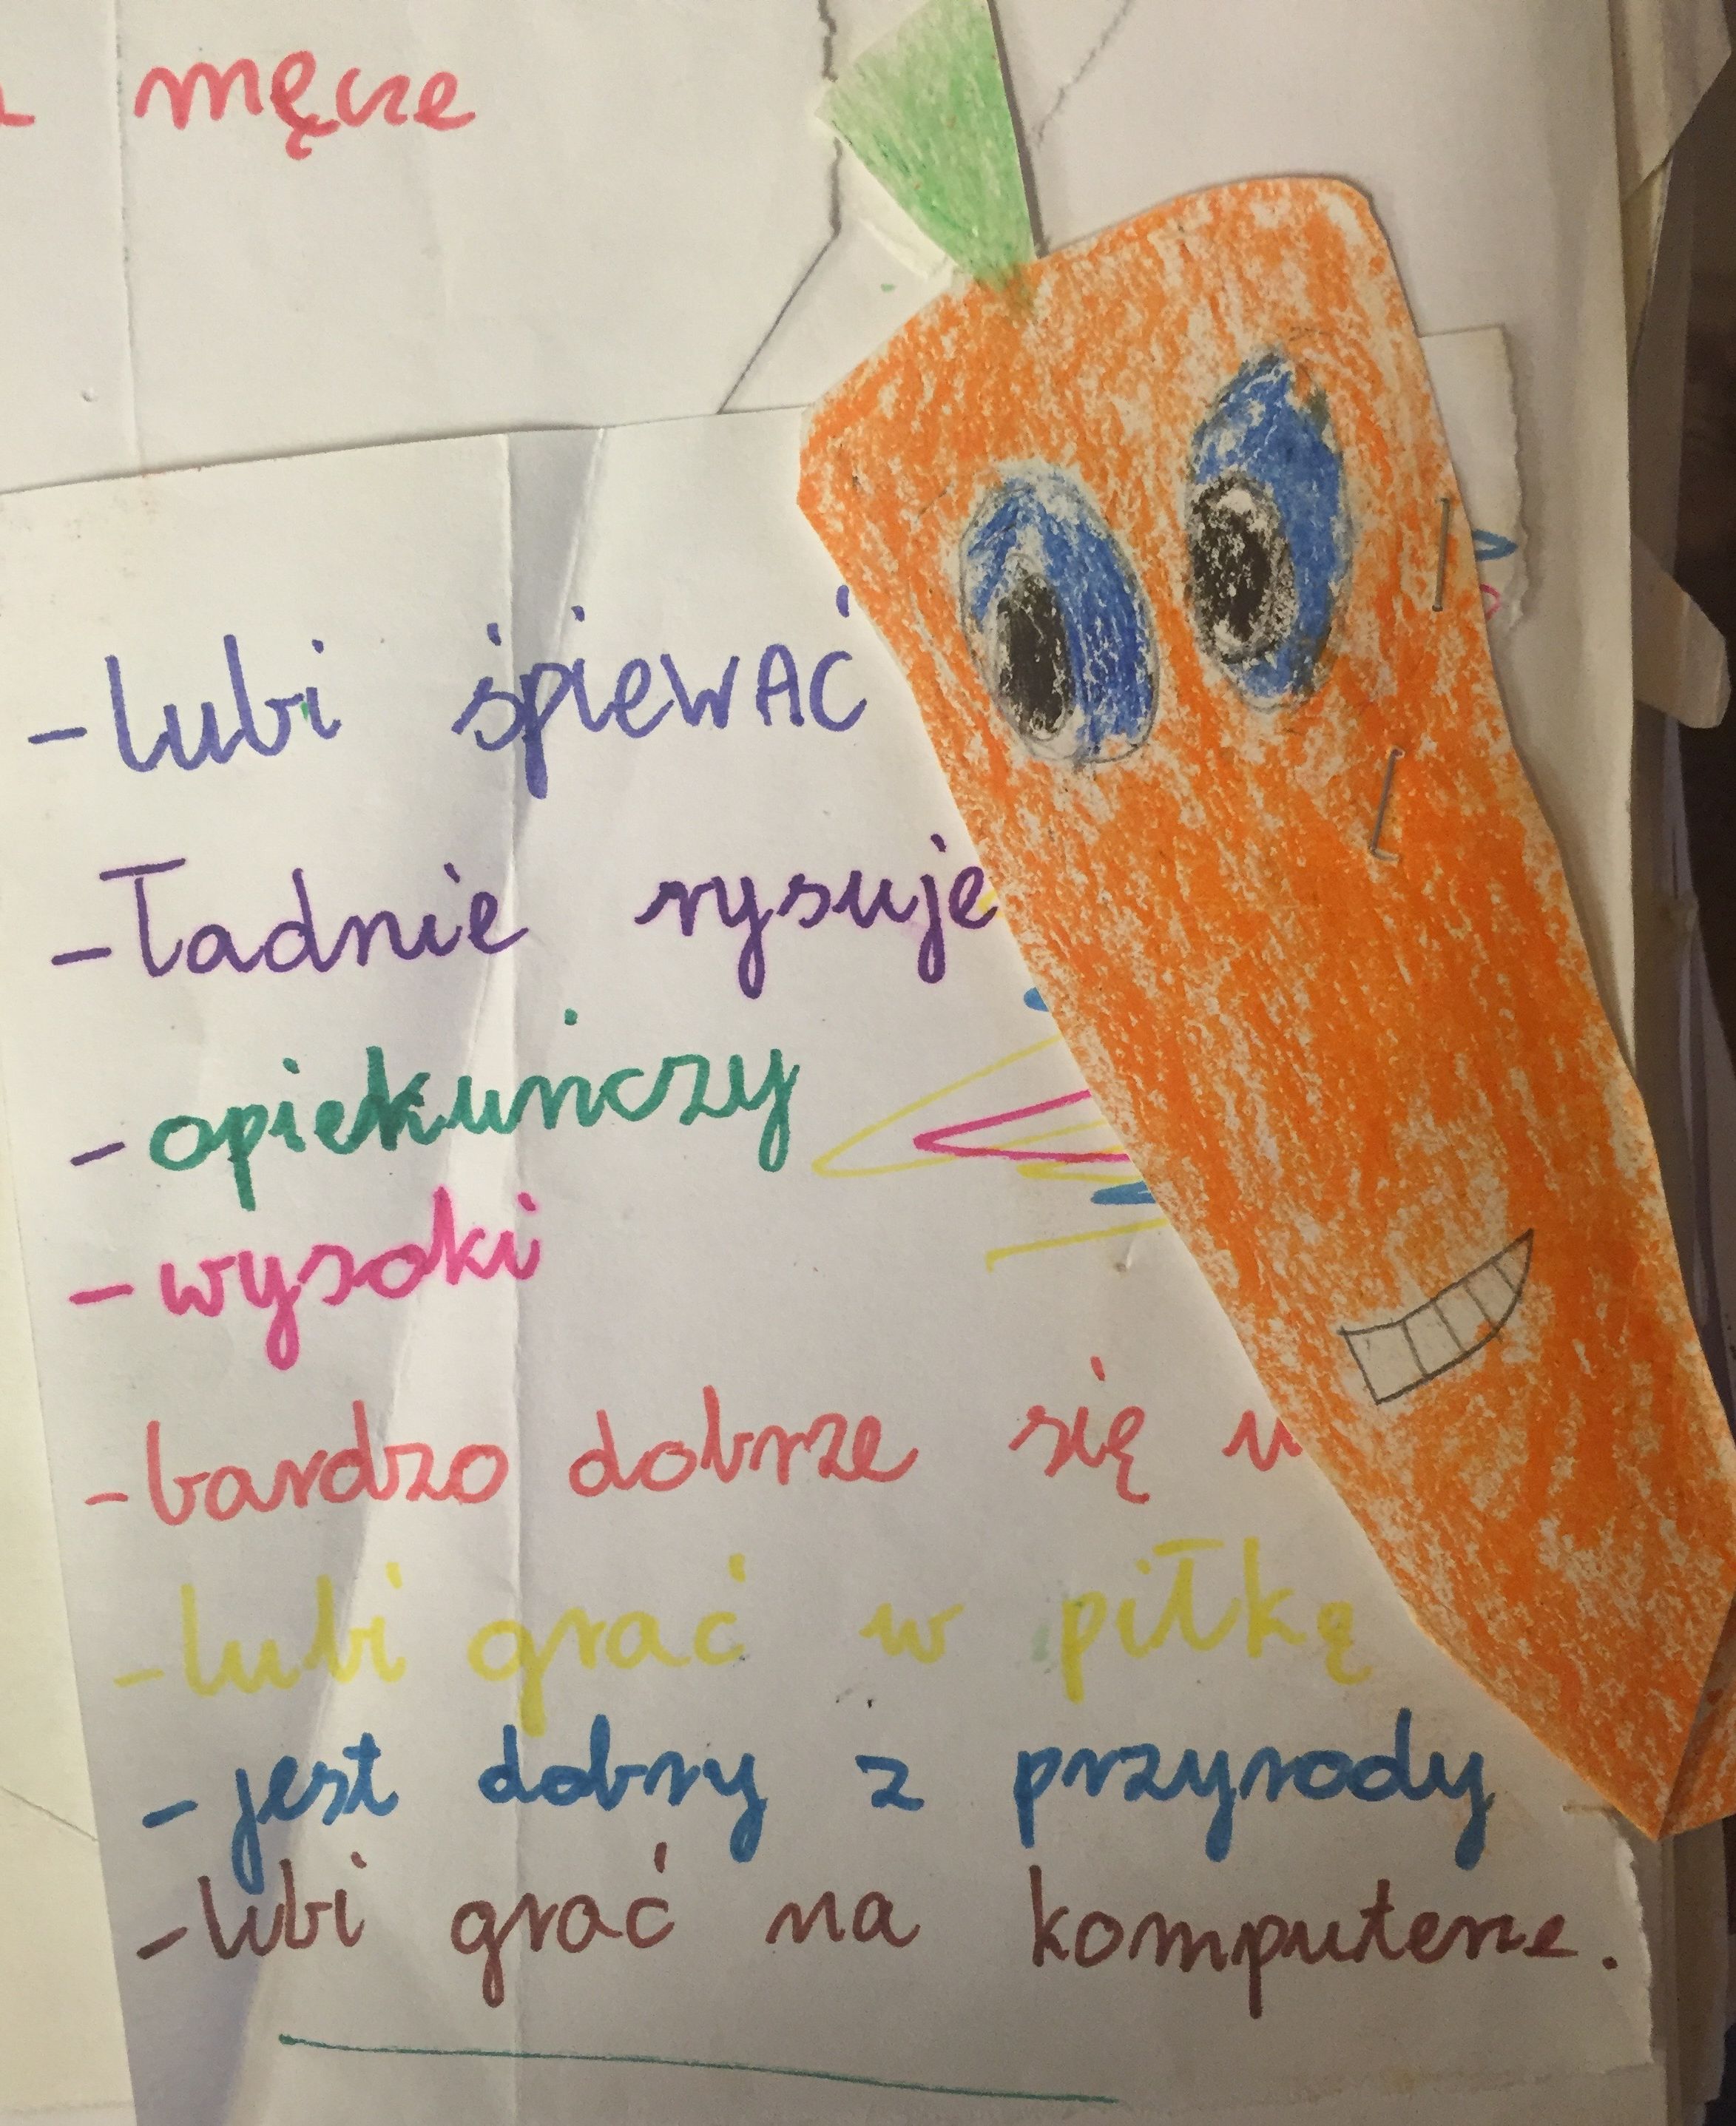 męcze
- lubi śpiewAĆ
- Ładnie rysuje
- opiekuńczy
- wysoki
- bardzo dobrze się
- lubi grać w piłkę
- jest dobry z przyrody
- lubi grać na komputerze.